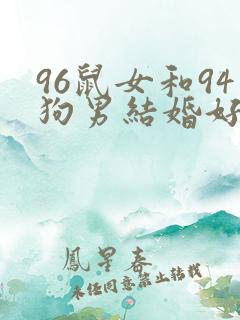 96鼠女和94
狗男結婚好
鳳星春
未經同意禁止轉載